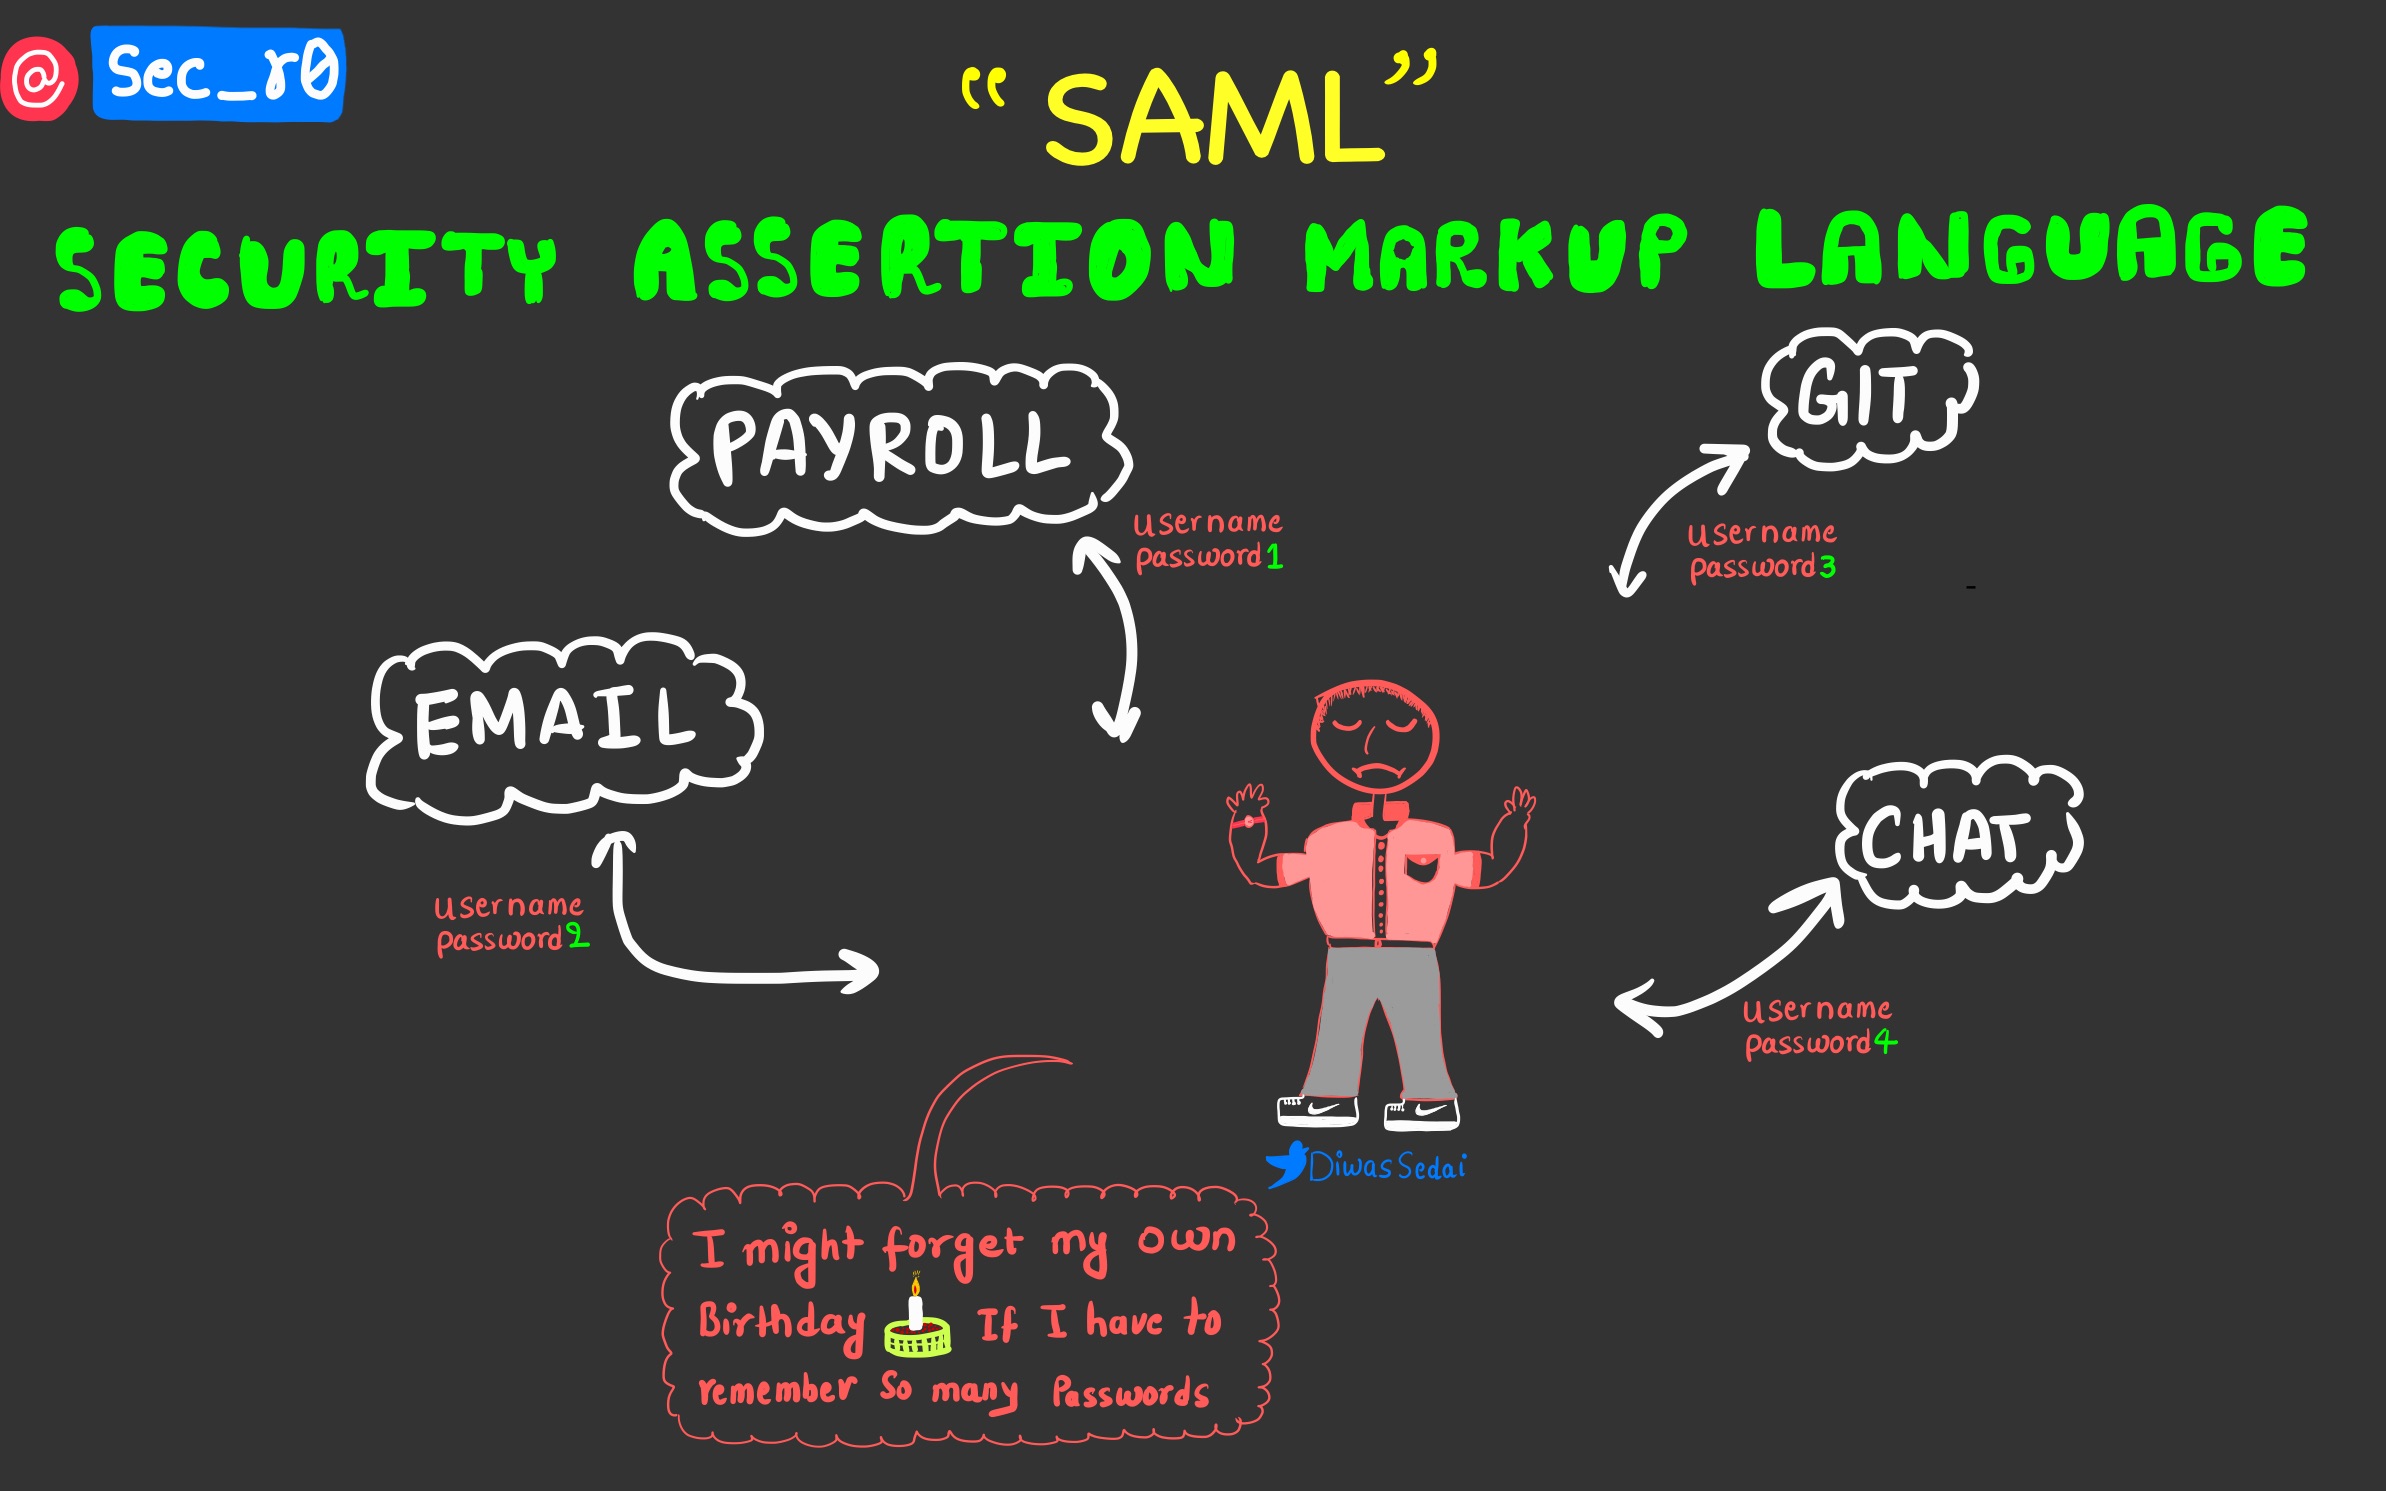 @ Sec_r0
“SAML”
SECURITY ASSERTION MARKUP LANGUAGE
PAYROLL
GIT
username
password1
username
password3
EMAIL
CHAT
username
password2
username
password4
DiwasSedai
I might forget my own
Birthday If I have to
remember so many Passwords